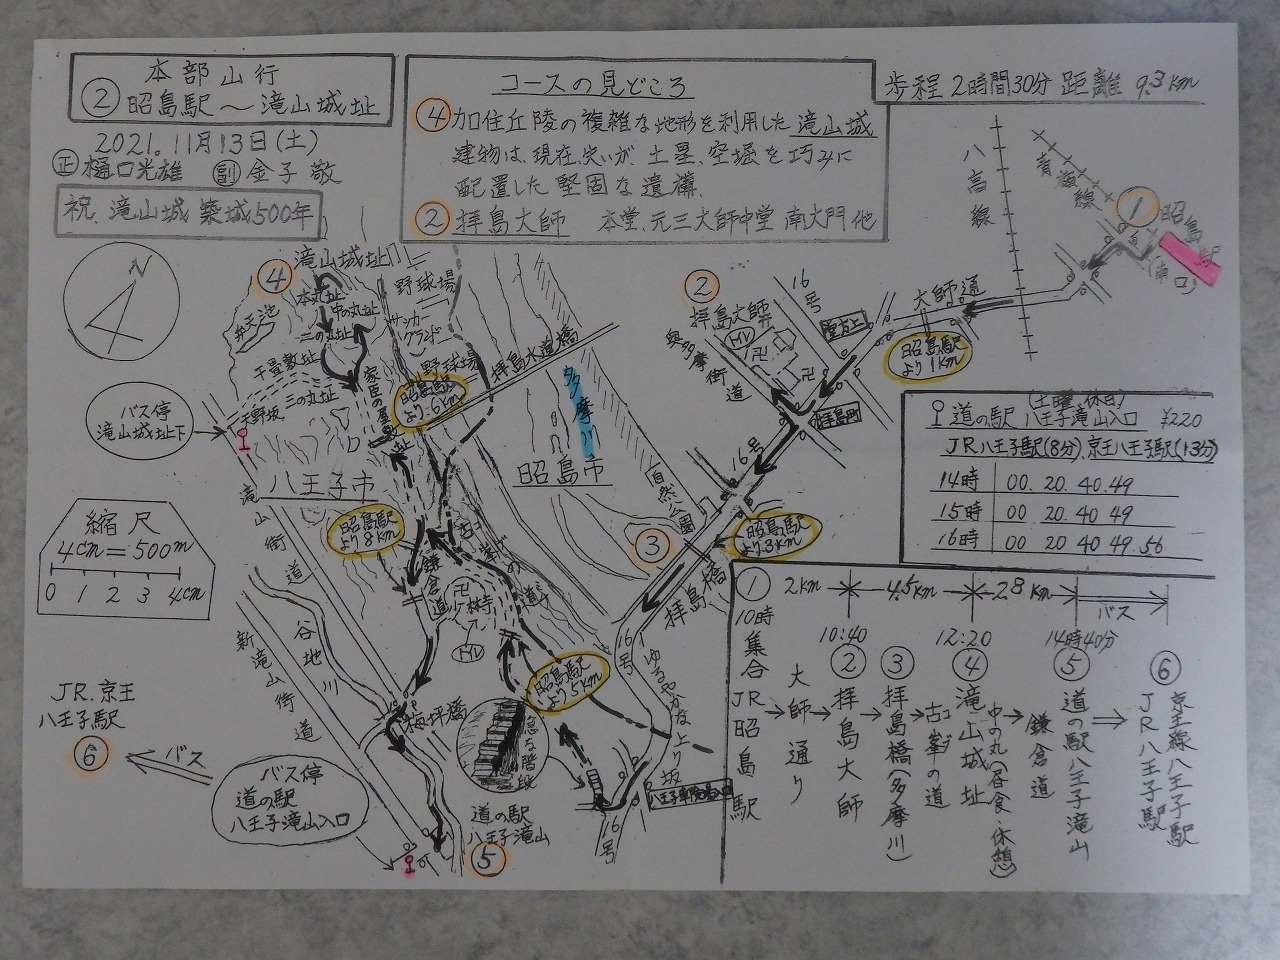 本部山行
② 昭島駅～滝山城址
2021.11月13日(土)
正 樋口光雄 副 金子 敬
祝.滝山城 築城500年
コースの見どころ
④ 加住丘陵の複雑な地形を利用した滝山城
建物は、現在、失いが、土塁、空堀を巧みに
配置した堅固な遺構.
② 拝島大師 本堂、元三大師中堂 南大門 他
歩程 2時間30分 距離 9.3km
八高線
青梅線
①
昭島駅
(南口)
大師通
昭島駅
より1km
16号
堂方上
②
拝島大師
奥多摩街道
拝島町
16号
N
④
滝山城址
野球場
本丸址
中の丸址
弁天池
二の丸址
サッカー
グランド
千畳敷址
三の丸址
天野坂
家臣の屋敷址
野球場
拝島水道橋
昭島駅
より.6km
多摩川
昭島市
バス停
滝山城址下
八王子市
昭島駅
より8km
滝山街道
自然公園
③
昭島駅
より.3km
拝島橋
縮尺
4cm=500m
0 1 2 3 4cm
谷地川
新滝山街道
鎌倉道
卍
少林寺
古峯の道
昭島駅
より5km
16号
ゆるやかな上り坂
梅坪橋
急な階段
道の駅
八王子滝山
⑤
16号
JR.京王
八王子駅
⑥
バス
バス停
道の駅
八王子滝山入口
(土曜.休日)
道の駅 八王子滝山入口 ¥220
JR八王子駅(8分)、京王八王子駅(13分)
14時 00. 20. 40. 49
15時 00 20. 40 49
16時 00 20 40 49. 56
① 2km 4.5km 2.8km バス
10時集合 10:40 12:20 14時40分
JR昭島駅
→大師通り
→② 拝島大師
→③ 拝島橋(多摩川)
→古峯の道
④ 滝山城址
中の丸(昼食・休憩)
→鎌倉道
⑤ 道の駅八王子滝山
⑥ 京王線八王子駅
JR八王子駅